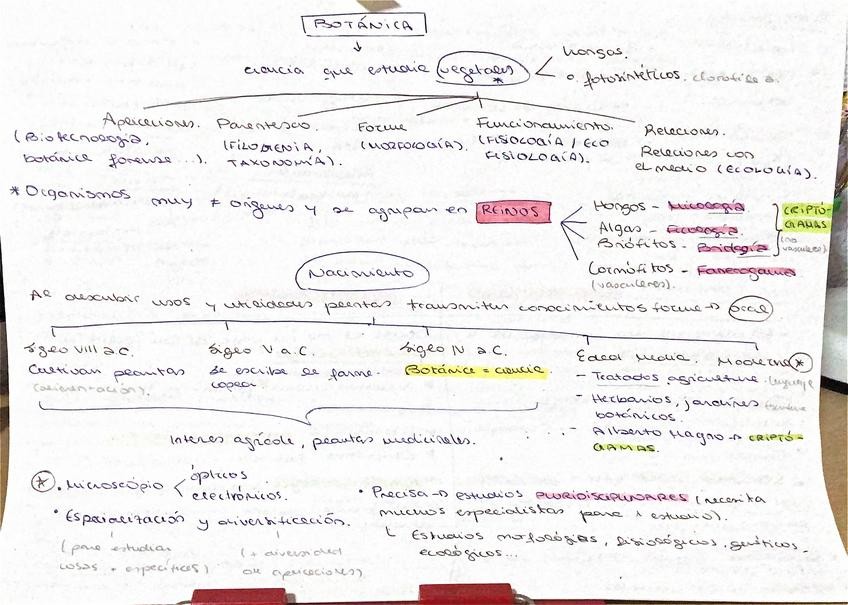 BOTÁNICA
↓
ciencia que estudia vegetales* < hongos.
o. fotosintéticos. clorofila a.
Aplicaciones. Parentesco. Forma Funcionamiento. Relaciones.
(Biotecnología, (FILOGENIA, (MORFOLOGÍA). (FISIOLOGÍA / ECO Relaciones con
botánica forense...). TAXONOMÍA). FISIOLOGÍA). el medio (ECOLOGÍA).
* Organismos muy ≠ orígenes y se agrupan en REINOS
Hongos - Micología
Algas - Ficología
Briófitos - Briología
Cormófitos - Fanerogamia
(vasculares).
CRIPTÓ-
GAMAS
(no
vasculares)
Nacimiento
Al descubrir usos y utilidades plantas transmiten conocimientos forma → oral
Siglo VIII a.C. Siglo V a.C. Siglo IV a.C. Edad Media. Moderna*
Cultivan plantas Se escribe de forma Botánica = ciencia
(alimentación). copia
- Tratados agricultura.
- Herbarios, jardines
botánicos.
- Alberto Magno → CRIPTÓ-
GAMAS.
Interés agrícola, plantas medicinales.
* . Microscópio < ópticos
electrónicos.
• Especialización y diversificación.
(para estudiar (+ diversidad
cosas + específicas) de aplicaciones).
• Precisa → estudios PLURIDISCIPLINARES (necesita
muchos especialistas para 1 estudio).
└ Estudios morfológicos, fisiológicos, genéticos,
ecológicos...